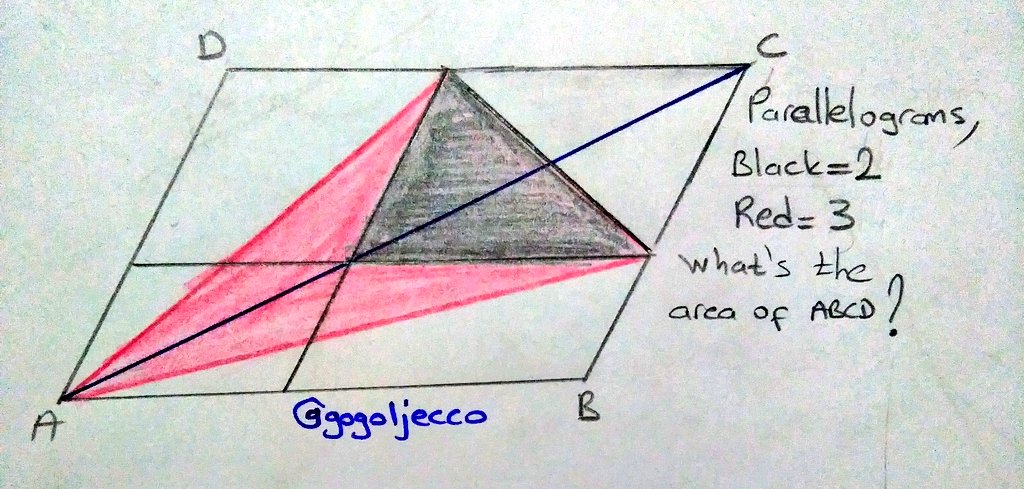 D
C
Parallelograms,
Black=2
Red=3
what's the
area of ABCD?
A
B
@gogoljecco